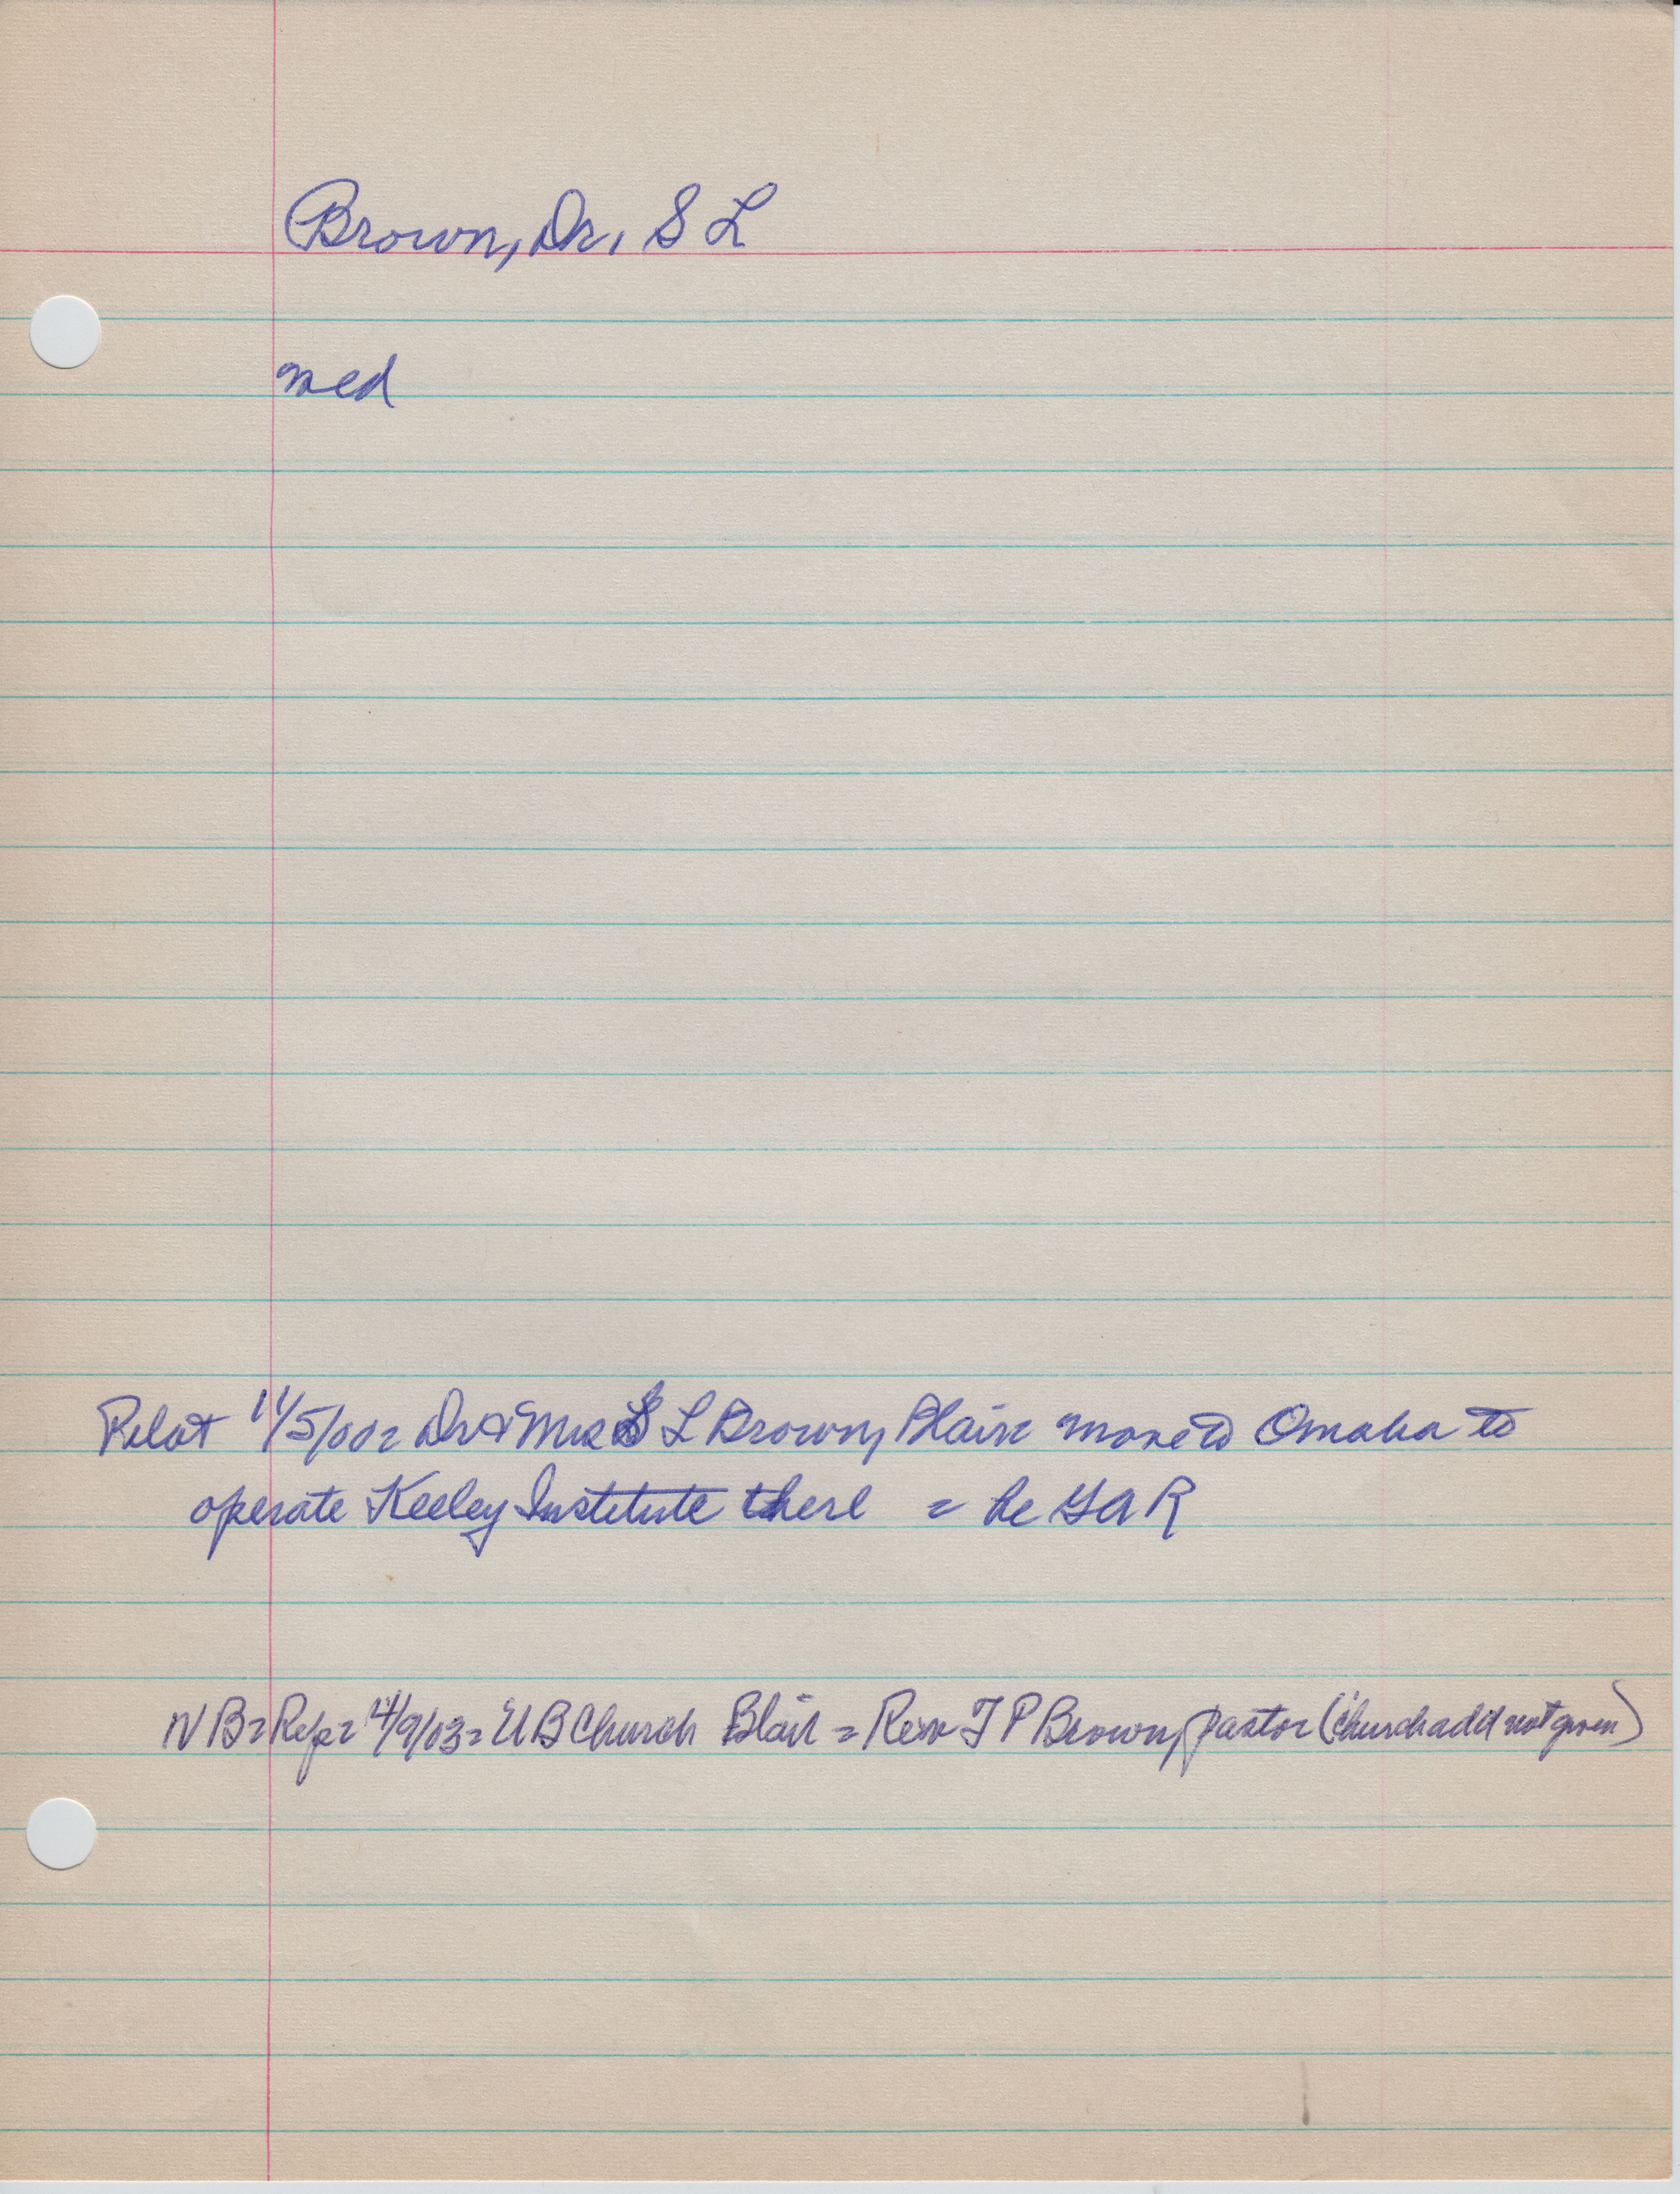 Brown, Dr. S L
med
Pilot 11/5/00 = Dr & Mrs S L Brown, Blair move to Omaha to
operate Keeley Institute there = he GAR
N B = Rep = 4/9/03 = U B Church Blair = Rev T P Brown, pastor (church add not given)